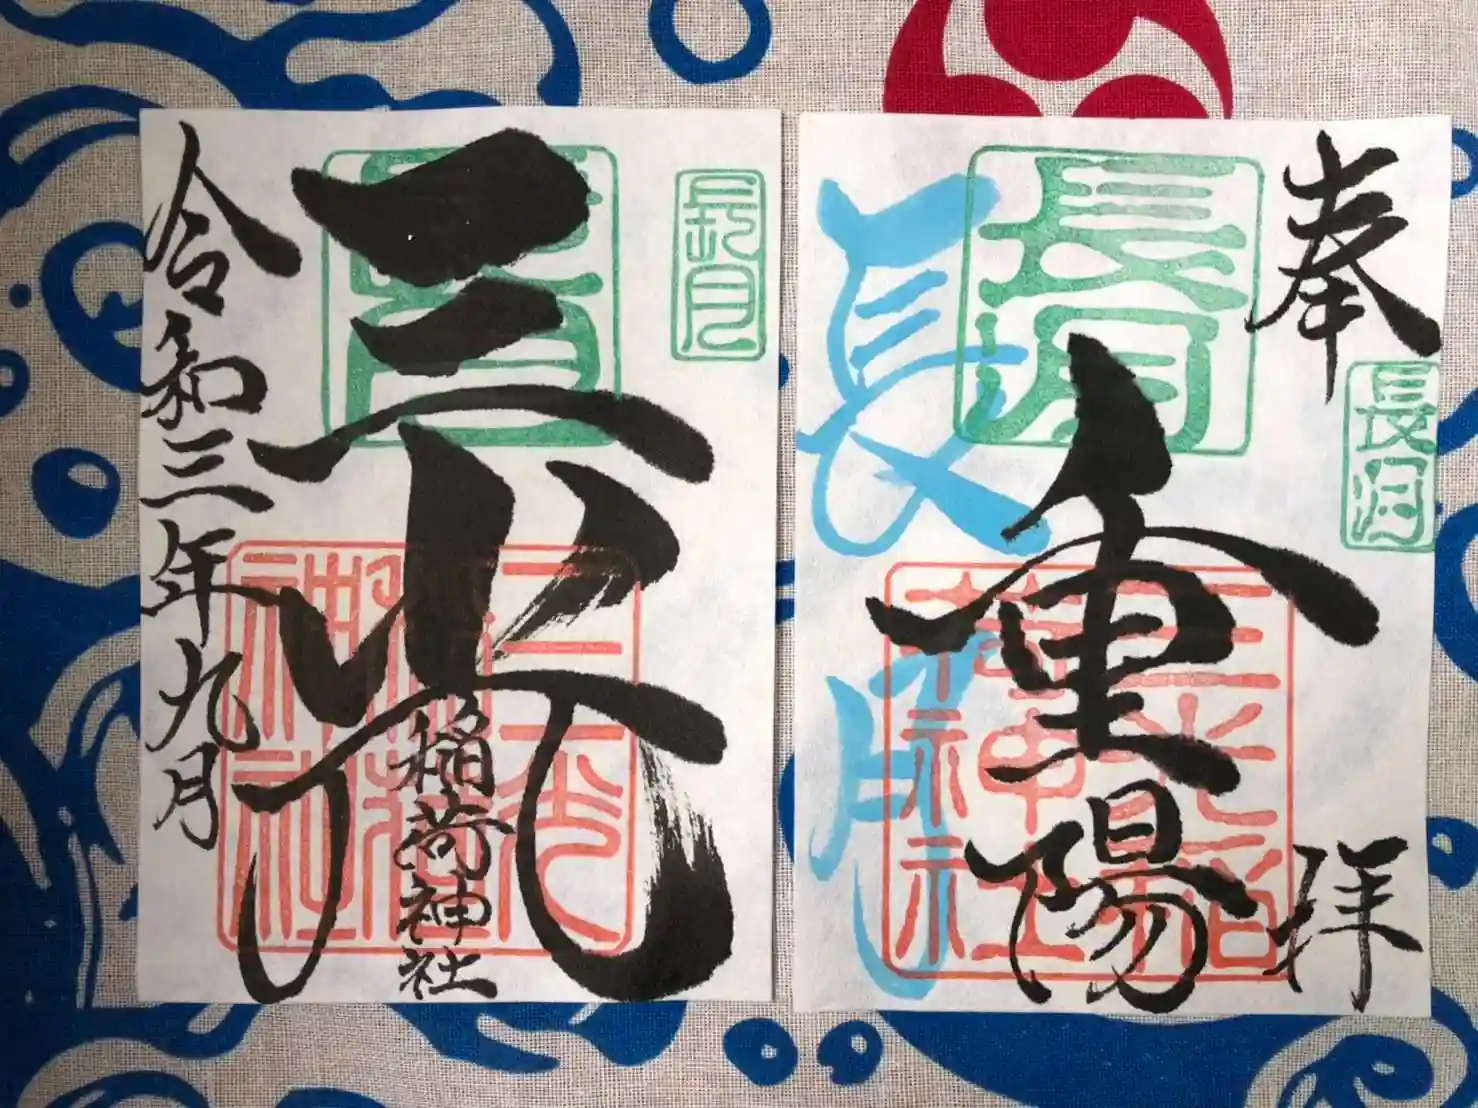 奉
長月
長月
長月
重陽
拝
長月
長月
三光
稲荷神社
三光稲荷神社
令和三年九月